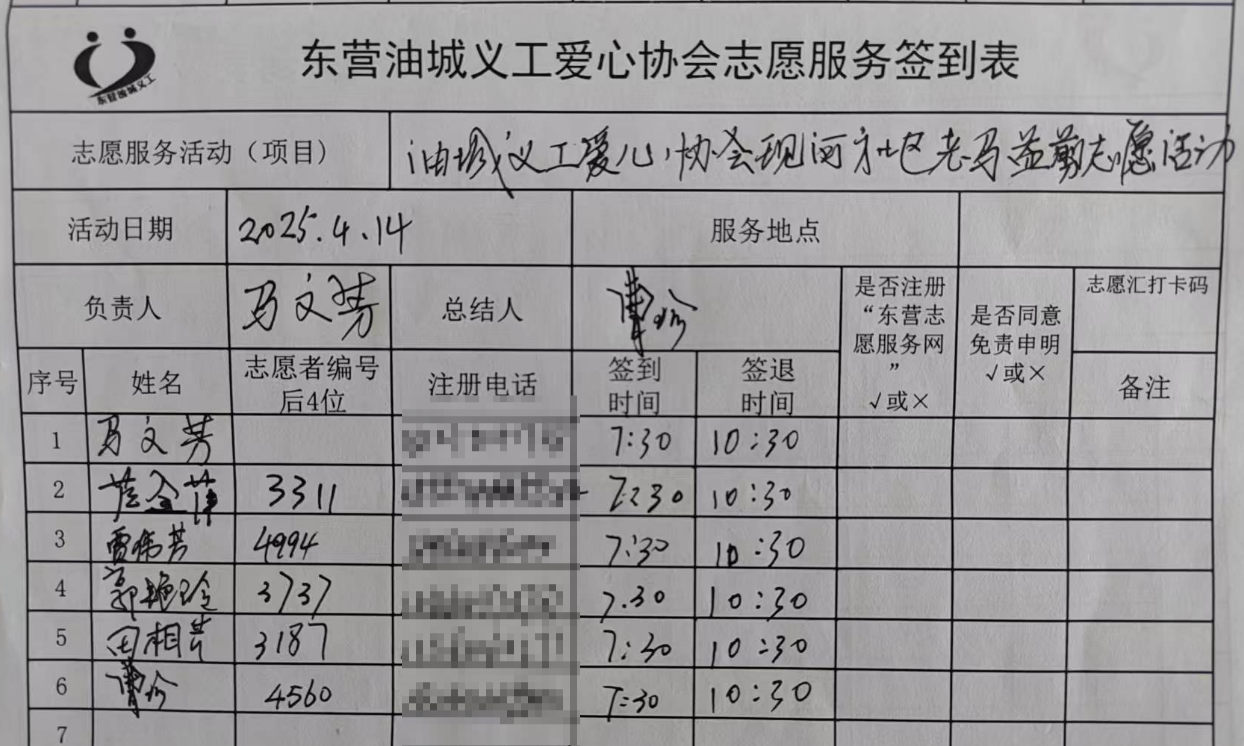 东营油城义工
东营油城义工爱心协会志愿服务签到表
志愿服务活动（项目） 油城义工爱心协会现河社区老马益剪志愿活动
活动日期 2025.4.14 服务地点
负责人 马文芳 总结人 是否注册“东营志愿服务网”√或× 是否同意免责申明√或× 志愿汇打卡码
序号 姓名 志愿者编号后4位 注册电话 签到时间 签退时间 备注
1 马文芳 7:30 10:30
2 3311 7:30 10:30
3 雷伟芳 4994 7:30 10:30
4 郭艳玲 3737 7.30 10:30
5 田相芹 3187 7:30 10:30
6 4560 7:30 10:30
7